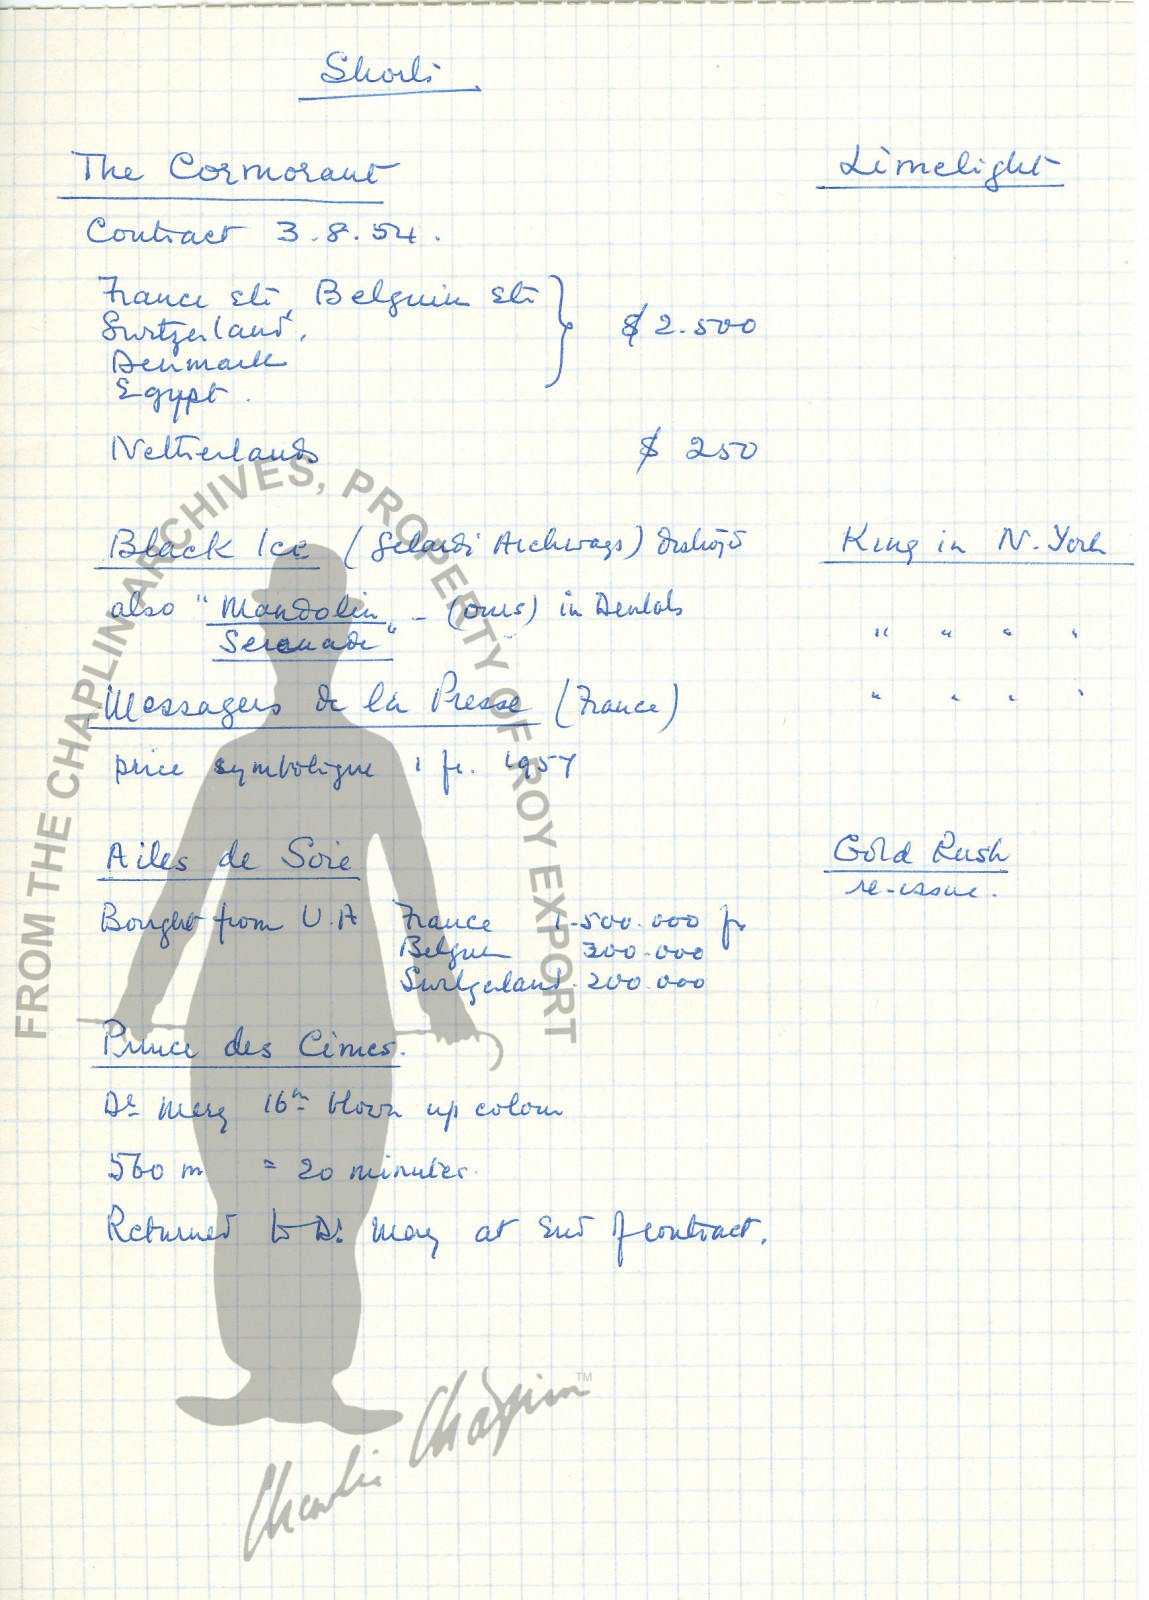 Shorts
The Cormorant Limelight
Contract 3.8.54.
France etc, Belguim etc
Switzerland,
Denmark
Egypt.
$ 2.500
Netherlands $ 250
Black Ice ( Archways) King in N. York
also "Mandolin - (ours) in
Serenade" " " " "
Messagers de la Presse (France) " " " "
price symbolique 1 fr. 1957
Ailes de Soie Gold Rush
re-issue.
Bought from U.A France 1.500.000 fr
Belguim 300.000
Switzerland. 200.000
Prince des Cimes.
Dr 16m blown up colour
560 m = 20 minutes.
Returned to Dr at end of contract.
FROM THE CHAPLIN ARCHIVES, PROPERTY OF ROY EXPORT
Charlie Chaplin TM